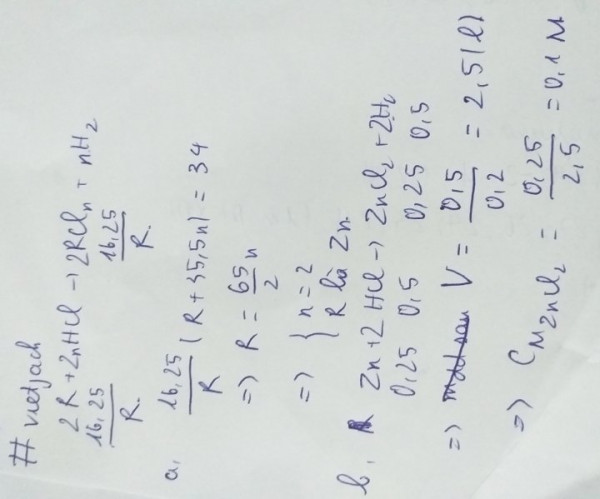 # vietjach
2R + 2nHCl → 2RCln + nH2
16,25/R 16,25/R
a, 16,25/R (R + 35,5n) = 34
=> R = 65n/2
=> { n = 2
R là Zn.
b, Zn + 2HCl → ZnCl2 + 2H2
0,25 0,5 0,25 0,5
=> V = 0,5/0,2 = 2,5 (l)
=> CM ZnCl2 = 0,25/2,5 = 0,1 M